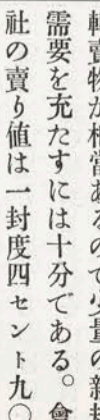 轉賣物が相當あるので少量の新
需要を充たすには十分である。會
社の賣り値は一封度四セント九〇